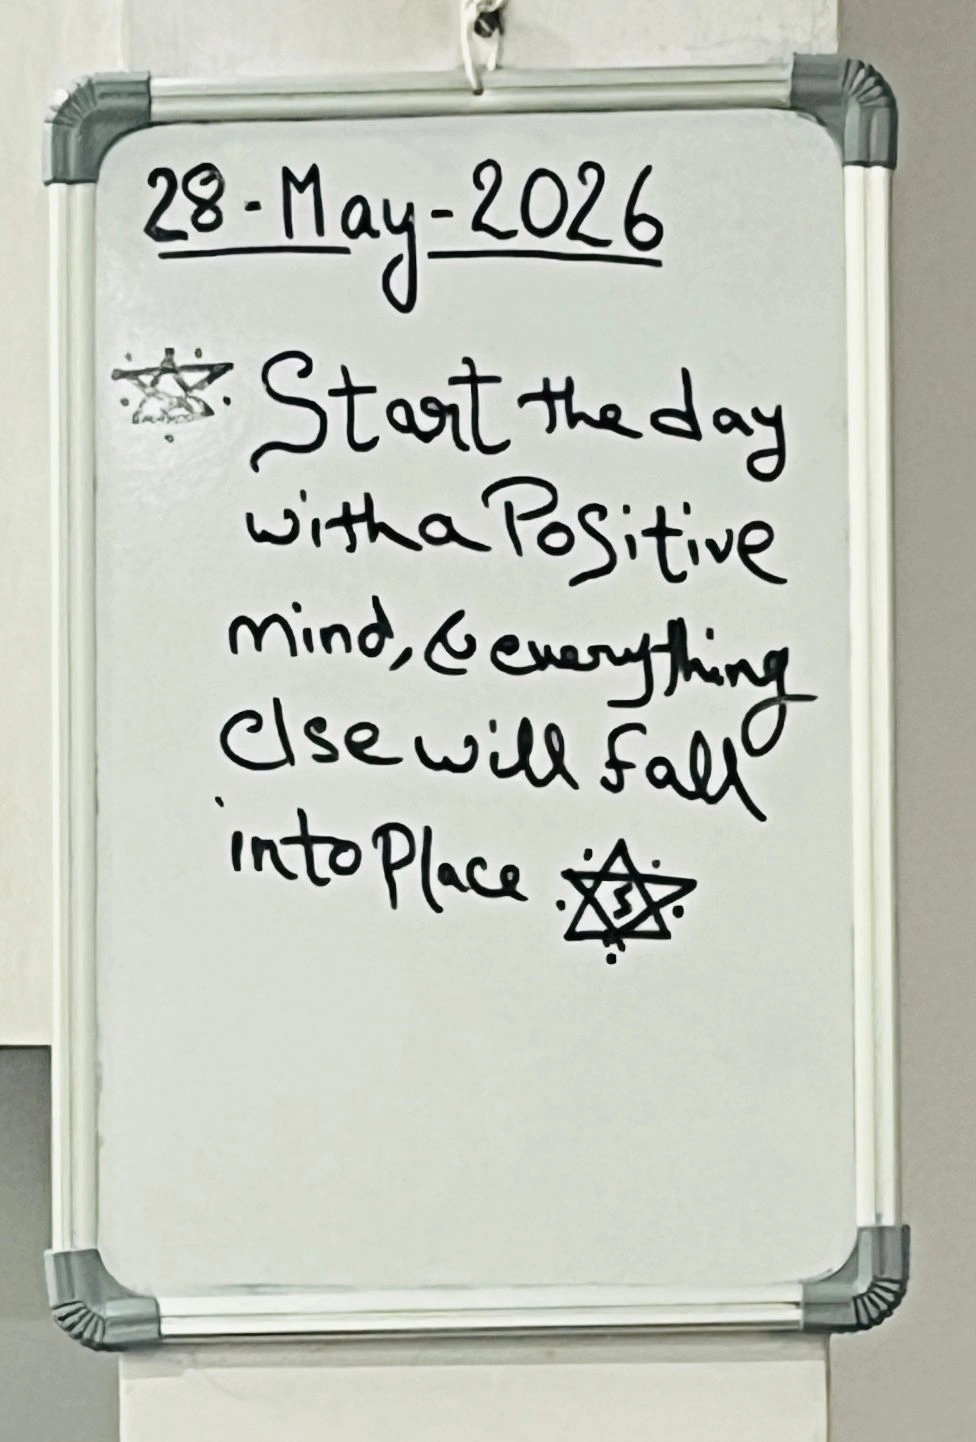 28-May-2026
Start the day
with a Positive
mind, & everything
else will fall
into Place